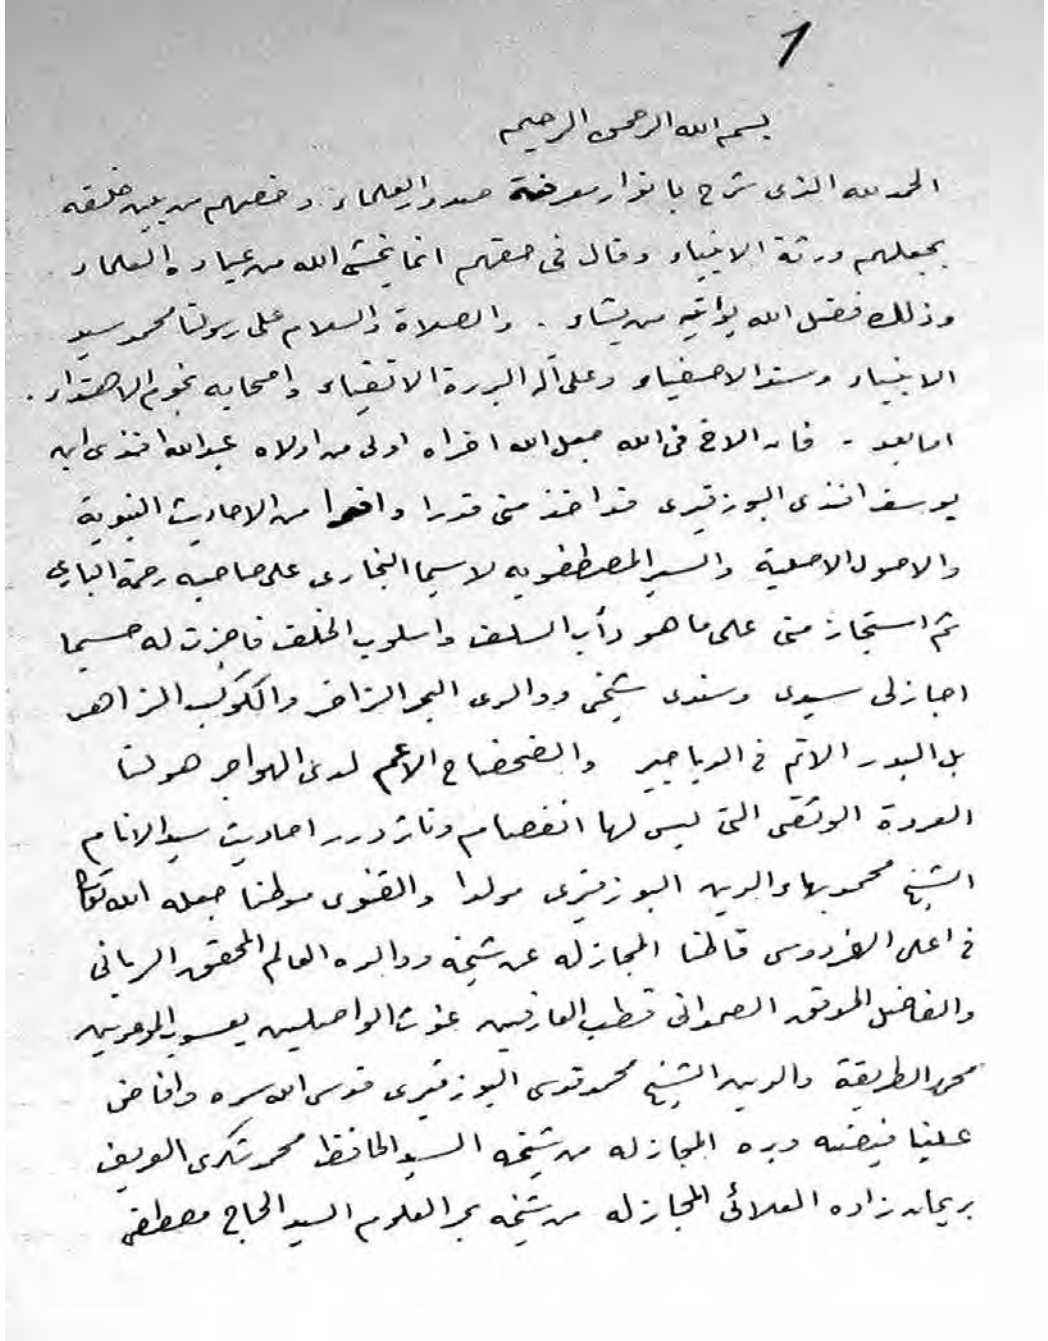 1
بسم الله الرحمن الرحيم
الحمد لله الذى شرح بانوار معرفته صدور العلماء. وخصهم من بين خلقه
بجعلهم ورثة الانبياء وقال فى حقهم انما يخشى الله من عباده العلماء
وذلك فضل الله يؤتيه من يشاء . والصلاة والسلام على رسولنا محمد سيد
الانبياء وسند الاصفياء وعلى آله البررة الاتقياء واصحابه نجوم الاهتداء .
اما بعد - فان الاخ فى الله جعل الله اخراه اولى من اولاه عبدالله افندى ابن
يوسف افندى البوزقيرى قد اخذ منى قدرا وافرا من الاحاديث النبوية
والاصول الاصلية والسير المصطفويه لاسيما البخارى على صاحبه رحمة البارى
ثم استجاز منى على ما هو دأب السلف واسلوب الخلف فاجزت له حسبما
اجازلى سيدى وسندى شيخى ووالدى البحر الزاخر والكوكب الزاهر
بل البدر الاتم فى الدياجير والضحضاح الاعم لدى الهواجر هو لنا
العروة الوثقى التى ليس لها انفصام وناثر درر احاديث سيد الانام
الشيخ محمد بهاء الدين البوزقيرى مولدا والقنوى موطنا جعله الله تعالى
فى اعلى الفردوس قاطنا المجاز له عن شيخه ووالده العالم المحقق الربانى
والفاضل الموفق الصمدانى قطب العارفين غوث الواصلين يعسوب الموحدين
محمد الطريقة والدين الشيخ محمد قدسى البوزقيرى قدس الله سره وافاض
علينا فيضه وبره المجاز له من شيخه السيد الحافظ محمد شكرى العريف
بريحان زاده العلائى المجاز له من شيخه بحر العلوم السيد الحاج مصطفى